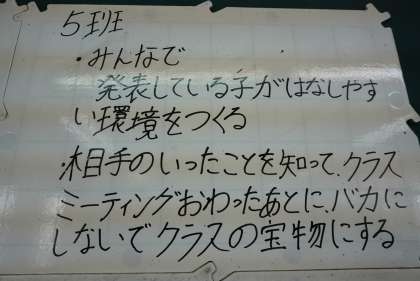 5班
・みんなで
発表している子がはなしやす
い環境をつくる
・相手のいったことを知って、クラス
ミーティングおわったあとに、バカに
しないでクラスの宝物にする